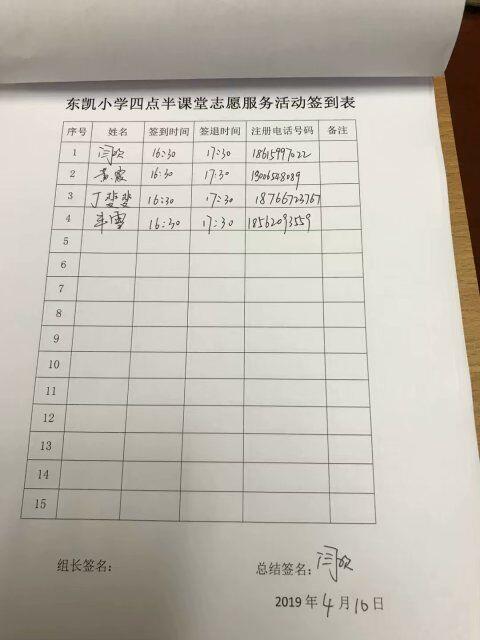 东凯小学四点半课堂志愿服务活动签到表
序号 姓名 签到时间 签退时间 注册电话号码 备注
1 闫欣 16:30 17:30 18615997022
2 16:30 17:30
3 丁斐斐 16:30 17:30 18766723767
4 车雪 16:30 17:30 18562093559
5
6
7
8
9
10
11
12
13
14
15
组长签名: 总结签名: 闫欣
2019 年 4 月 16 日